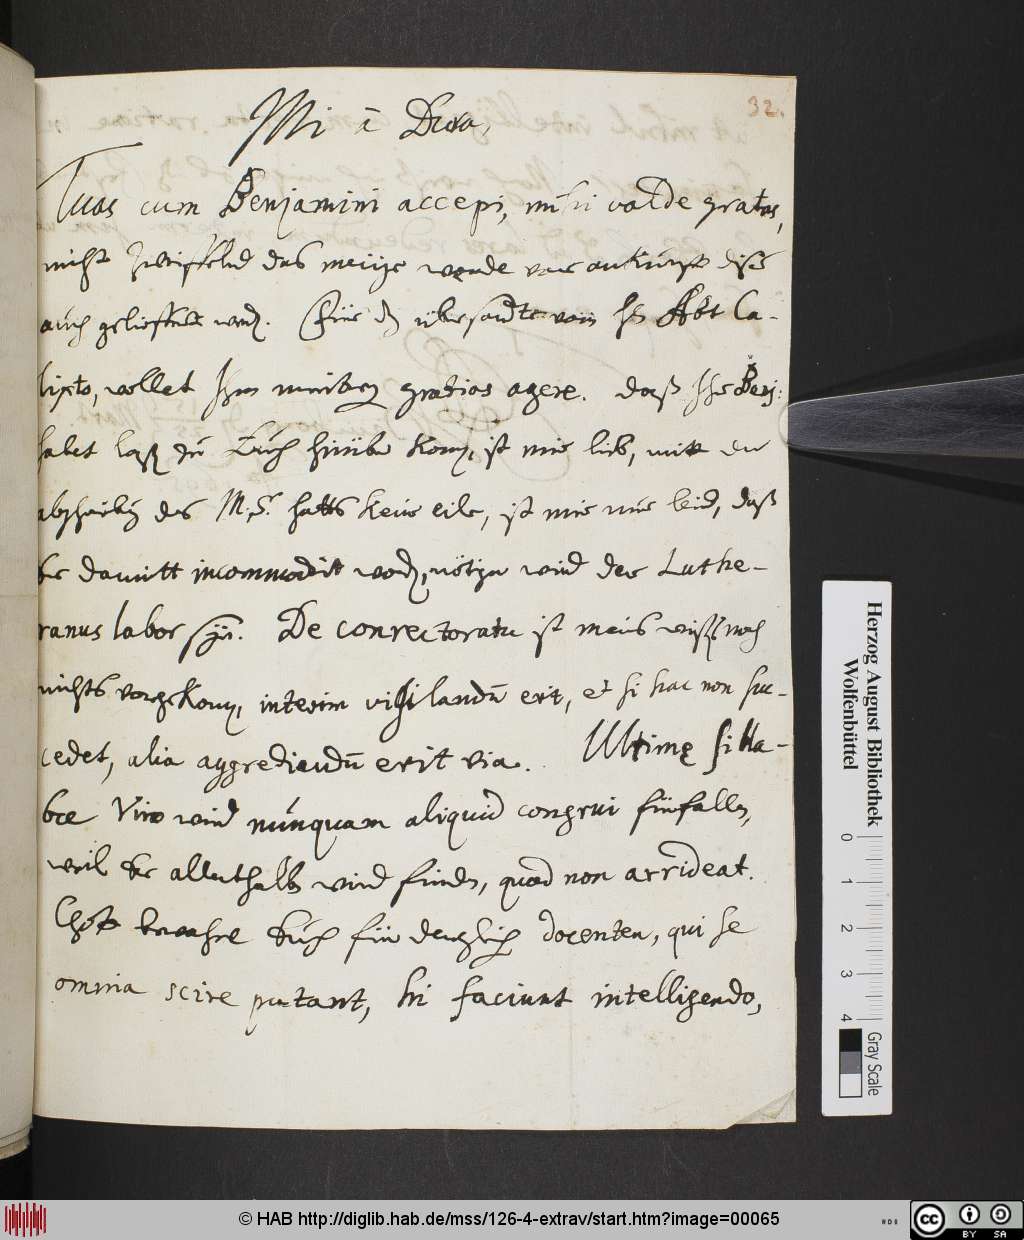 32.
Mi à Dera,
Tuas cum Benjamini accepi, mihi valde gratas,
nicht zweiffelnd das meinige werde vor ankunfft dises
auch gelieffert werd. Für dz übersandte von H Abt Ca-
lixto, wollet Ihm meinetweg gratias agere. Daß Ihr Benj:
habet laß zu Euch hinüber kom, ist mir lieb, mitt der
abschreibg des M.S. hatts keine eile, ist mir nur leid, daß
Er damitt incommodirt word, nötig wird der Luthe-
ranus labor sein. De conrectoratu ist meins wissens noch
nichts vorgekom, interim vigilandū erit, et si hac non suc-
cedet, alia aggrediendū erit via. Ultimę silla-
bæ Viro wird nunquam aliquid congrui fürfallen,
weil Er allenthalb wird finden, quod non arrideat.
Gott bewahre Euch für dergleich docenten, qui se
omnia scire putant, hi faciunt intelligendo,
Herzog August Bibliothek
Wolfenbüttel
0 1 2 3 4
Gray Scale
© HAB http://diglib.hab.de/mss/126-4-extrav/start.htm?image=00065
cc BY SA